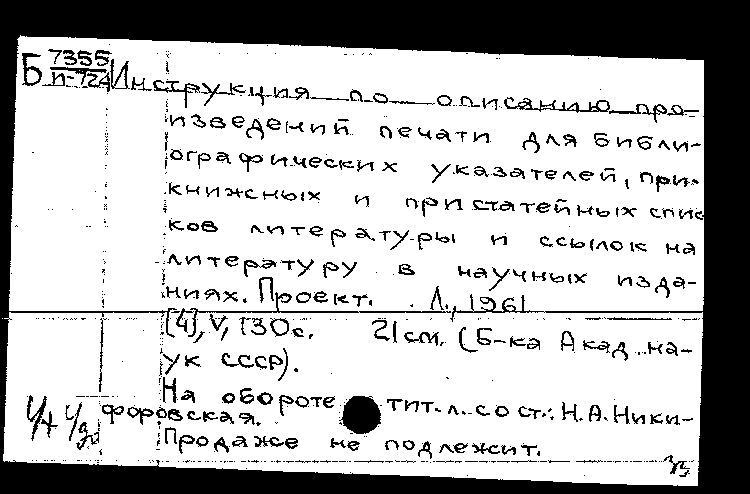 Б 7355
И-724
Инструкция по описанию про-
изведений печати для библи-
ографических указателей, при-
книжных и пристатейных спис
ков литературы и ссылок на
литературу в научных изда-
ниях. Проект. Л., 1961
[4], V, 130с. 21см. (Б-ка Акад. на-
ук СССР).
На обороте тит. л. сост.: Н.А. Ники-
форовская.
Продаже не подлежит.